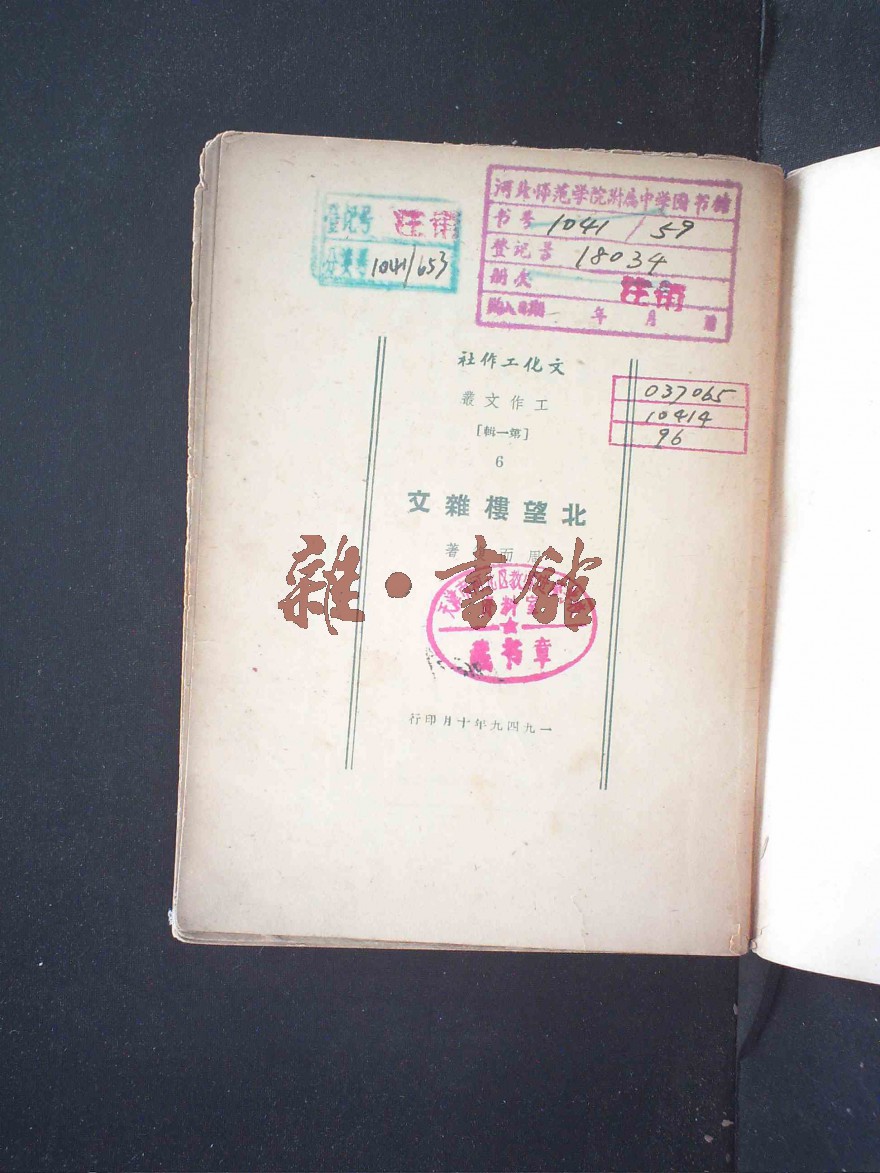 河北师范学院附属中学图书馆
书号 1041/59
登记号 18034
册次 注销
购入日期 年 月 日
登记号 注销
分类号 1041/653
社作工化文
叢文作工
[輯一第]
6
037065
10414
96
文雜樓望北
著 而周
雜·書館
资料室
藏书章
行印月十年九四九一